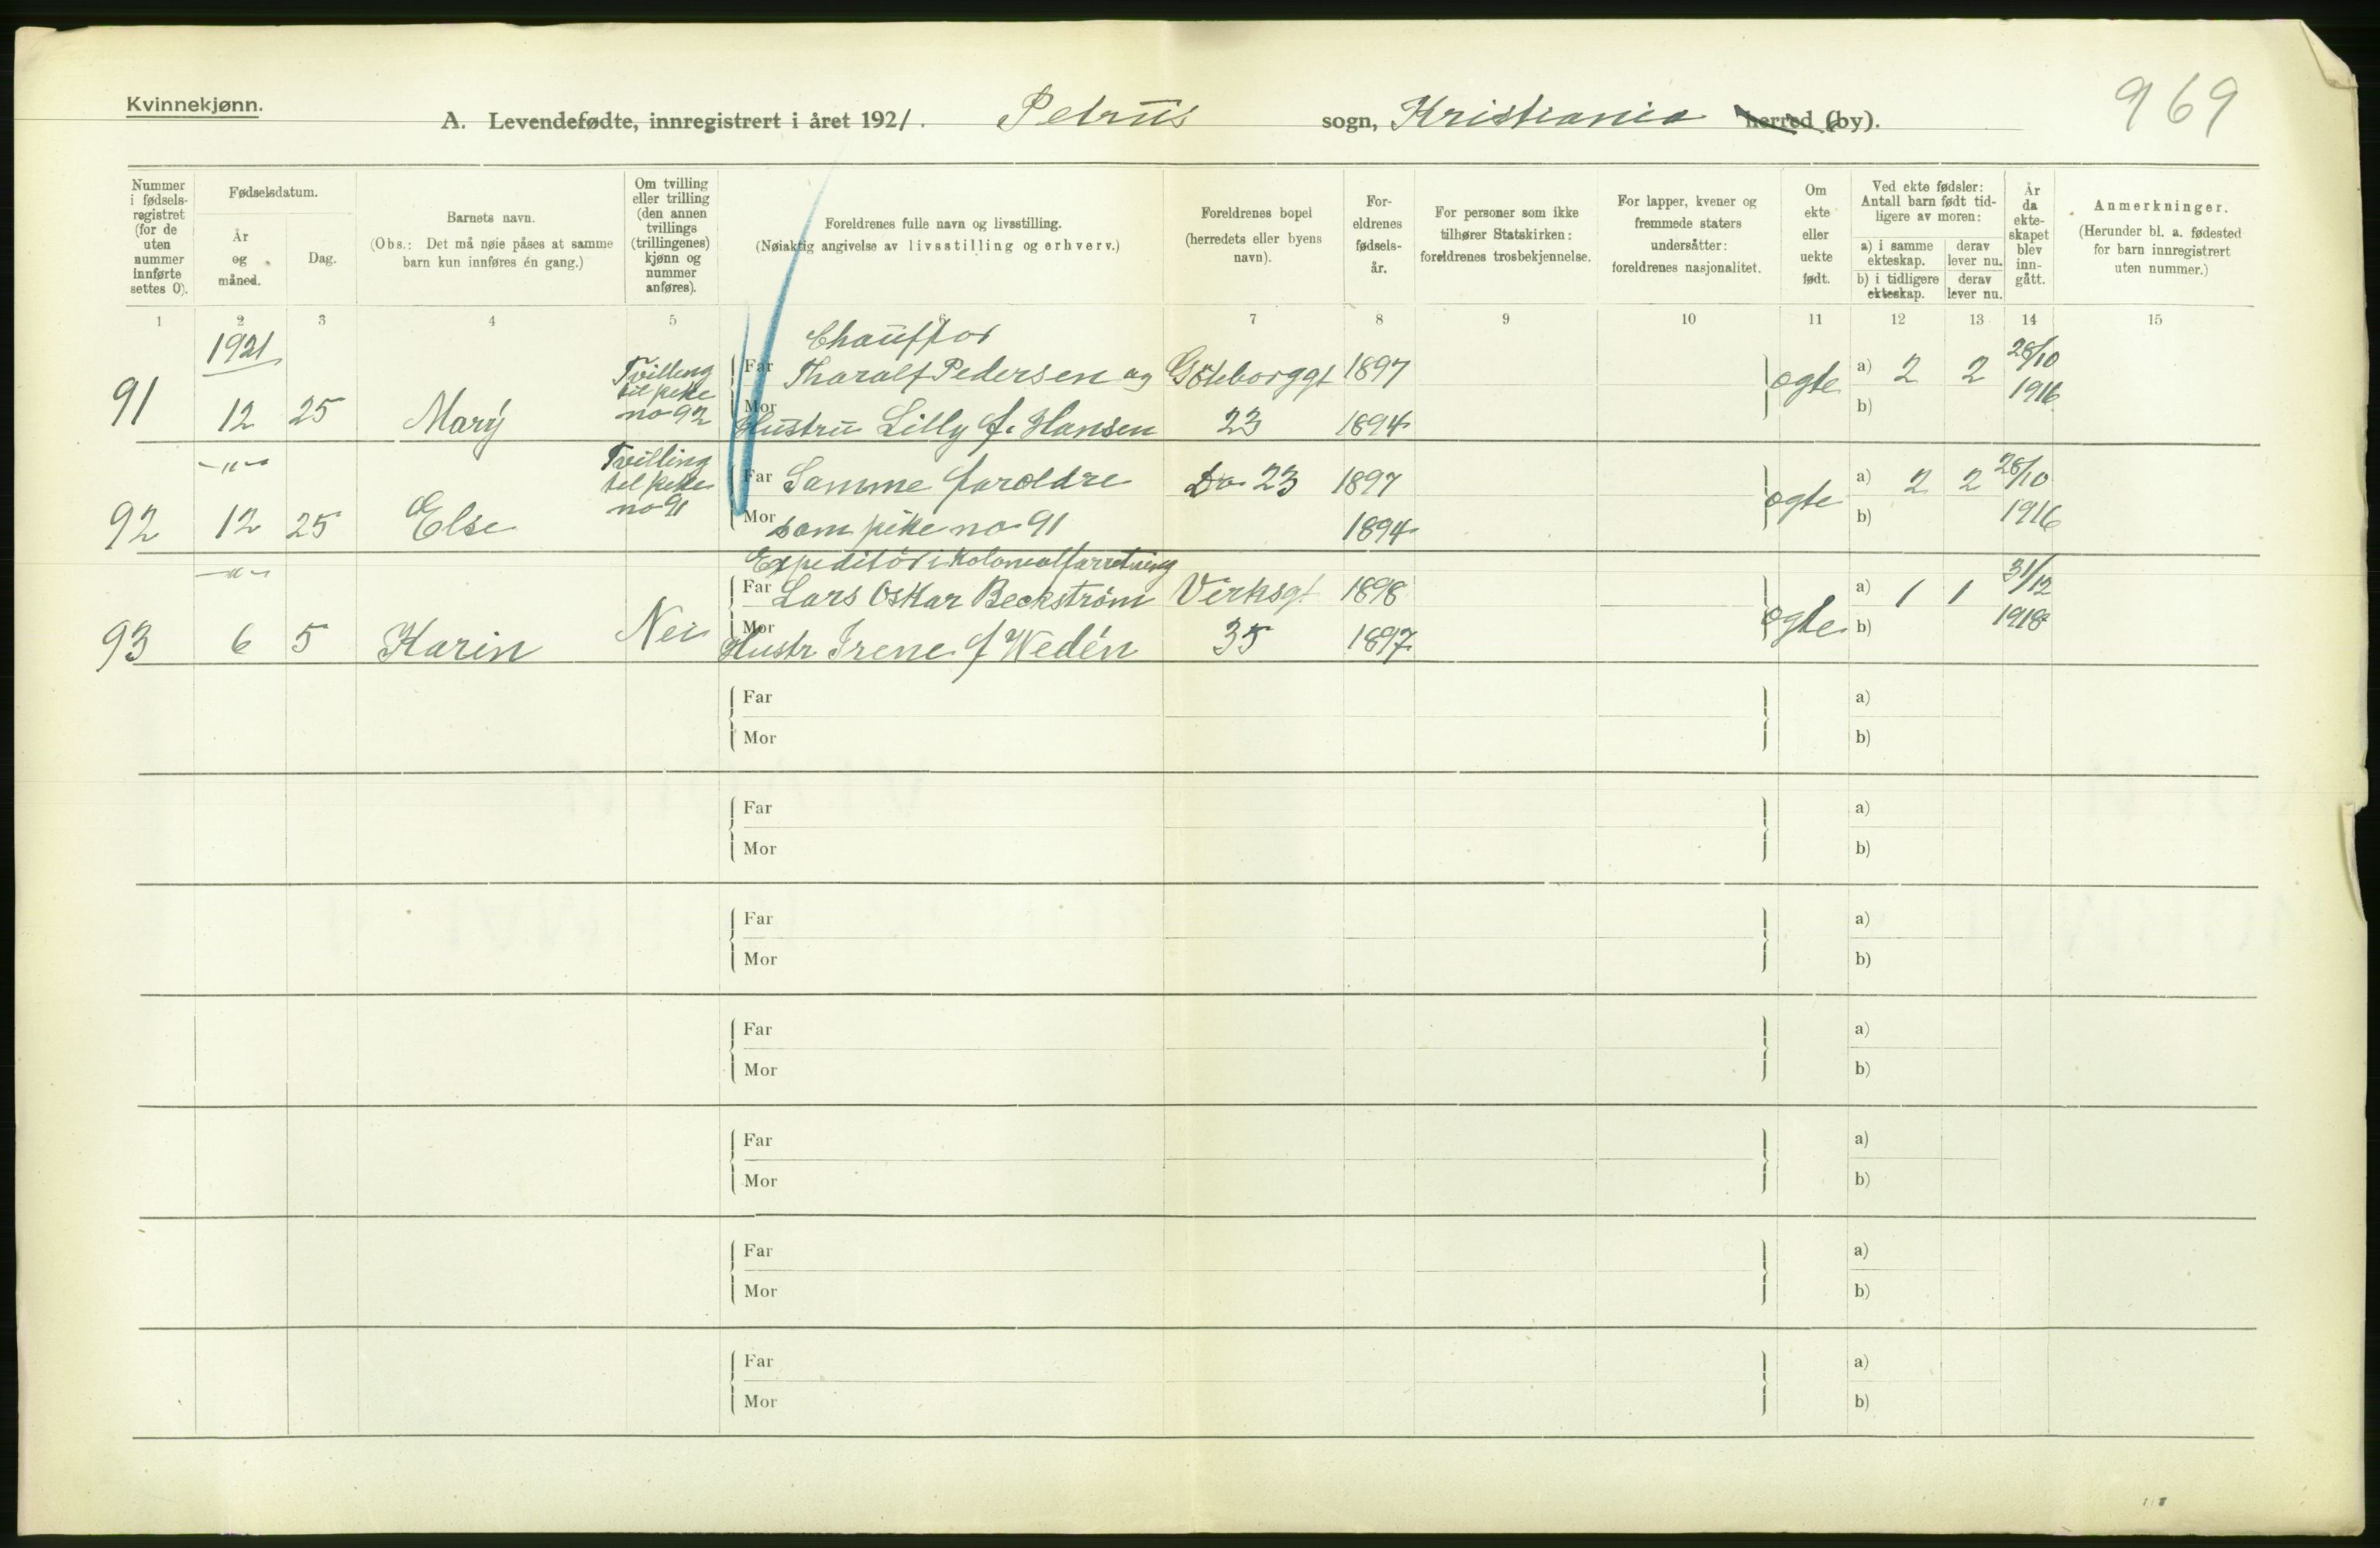 Kvinnekjønn.
A. Levendefødte, innregistrert i året 1921. Petrus sogn, Kristiania herred (by).
969
Nummer i fødselsregistret (for de uten nummer innførte settes 0).
Fødselsdatum.
År og måned.
Dag.
Barnets navn.
(Obs.: Det må nøie påses at samme barn kun innføres én gang.)
Om tvilling eller trilling (den annen tvillings (trillingenes) kjønn og nummer anføres).
Foreldrenes fulle navn og livsstilling.
(Nøiaktig angivelse av livsstilling og erhverv.)
Foreldrenes bopel (herredets eller byens navn).
Foreldrenes fødselsår.
For personer som ikke tilhører Statskirken: foreldrenes trosbekjennelse.
For lapper, kvener og fremmede staters undersåtter: foreldrenes nasjonalitet.
Om ekte eller uekte født.
Ved ekte fødsler: Antall barn født tidligere av moren:
a) i samme ekteskap.
derav lever nu.
b) i tidligere ekteskap.
derav lever nu.
År da ekteskapet blev inngått.
Anmerkninger.
(Herunder bl. a. fødested for barn innregistrert uten nummer.)
1 2 3 4 5 6 7 8 9 10 11 12 13 14 15
1921
Chauffør
91 12 25 Mary Tvilling til pike no 92
Far Tharalf Pedersen og Göteborggt 1897 ægte a) 2 2 28/10
Mor Hustru Lilly f. Hansen 23 1894 b) 1916
—"—
92 12 25 Else Tvilling til pike no 91
Far Samme foreldre Do 23 1897 ægte a) 2 2 28/10
Mor som pike no 91 1894 b) 1916
—"—
Expeditør i Kolonialforretning
93 6 5 Karin Nei
Far Lars Oskar Beckström Verksgt 1898 ægte a) 1 1 31/12
Mor Hustr Irene f Wedén 35 1897 b) 1918
Far a)
Mor b)
Far a)
Mor b)
Far a)
Mor b)
Far a)
Mor b)
Far a)
Mor b)
Far a)
Mor b)
Far a)
Mor b)